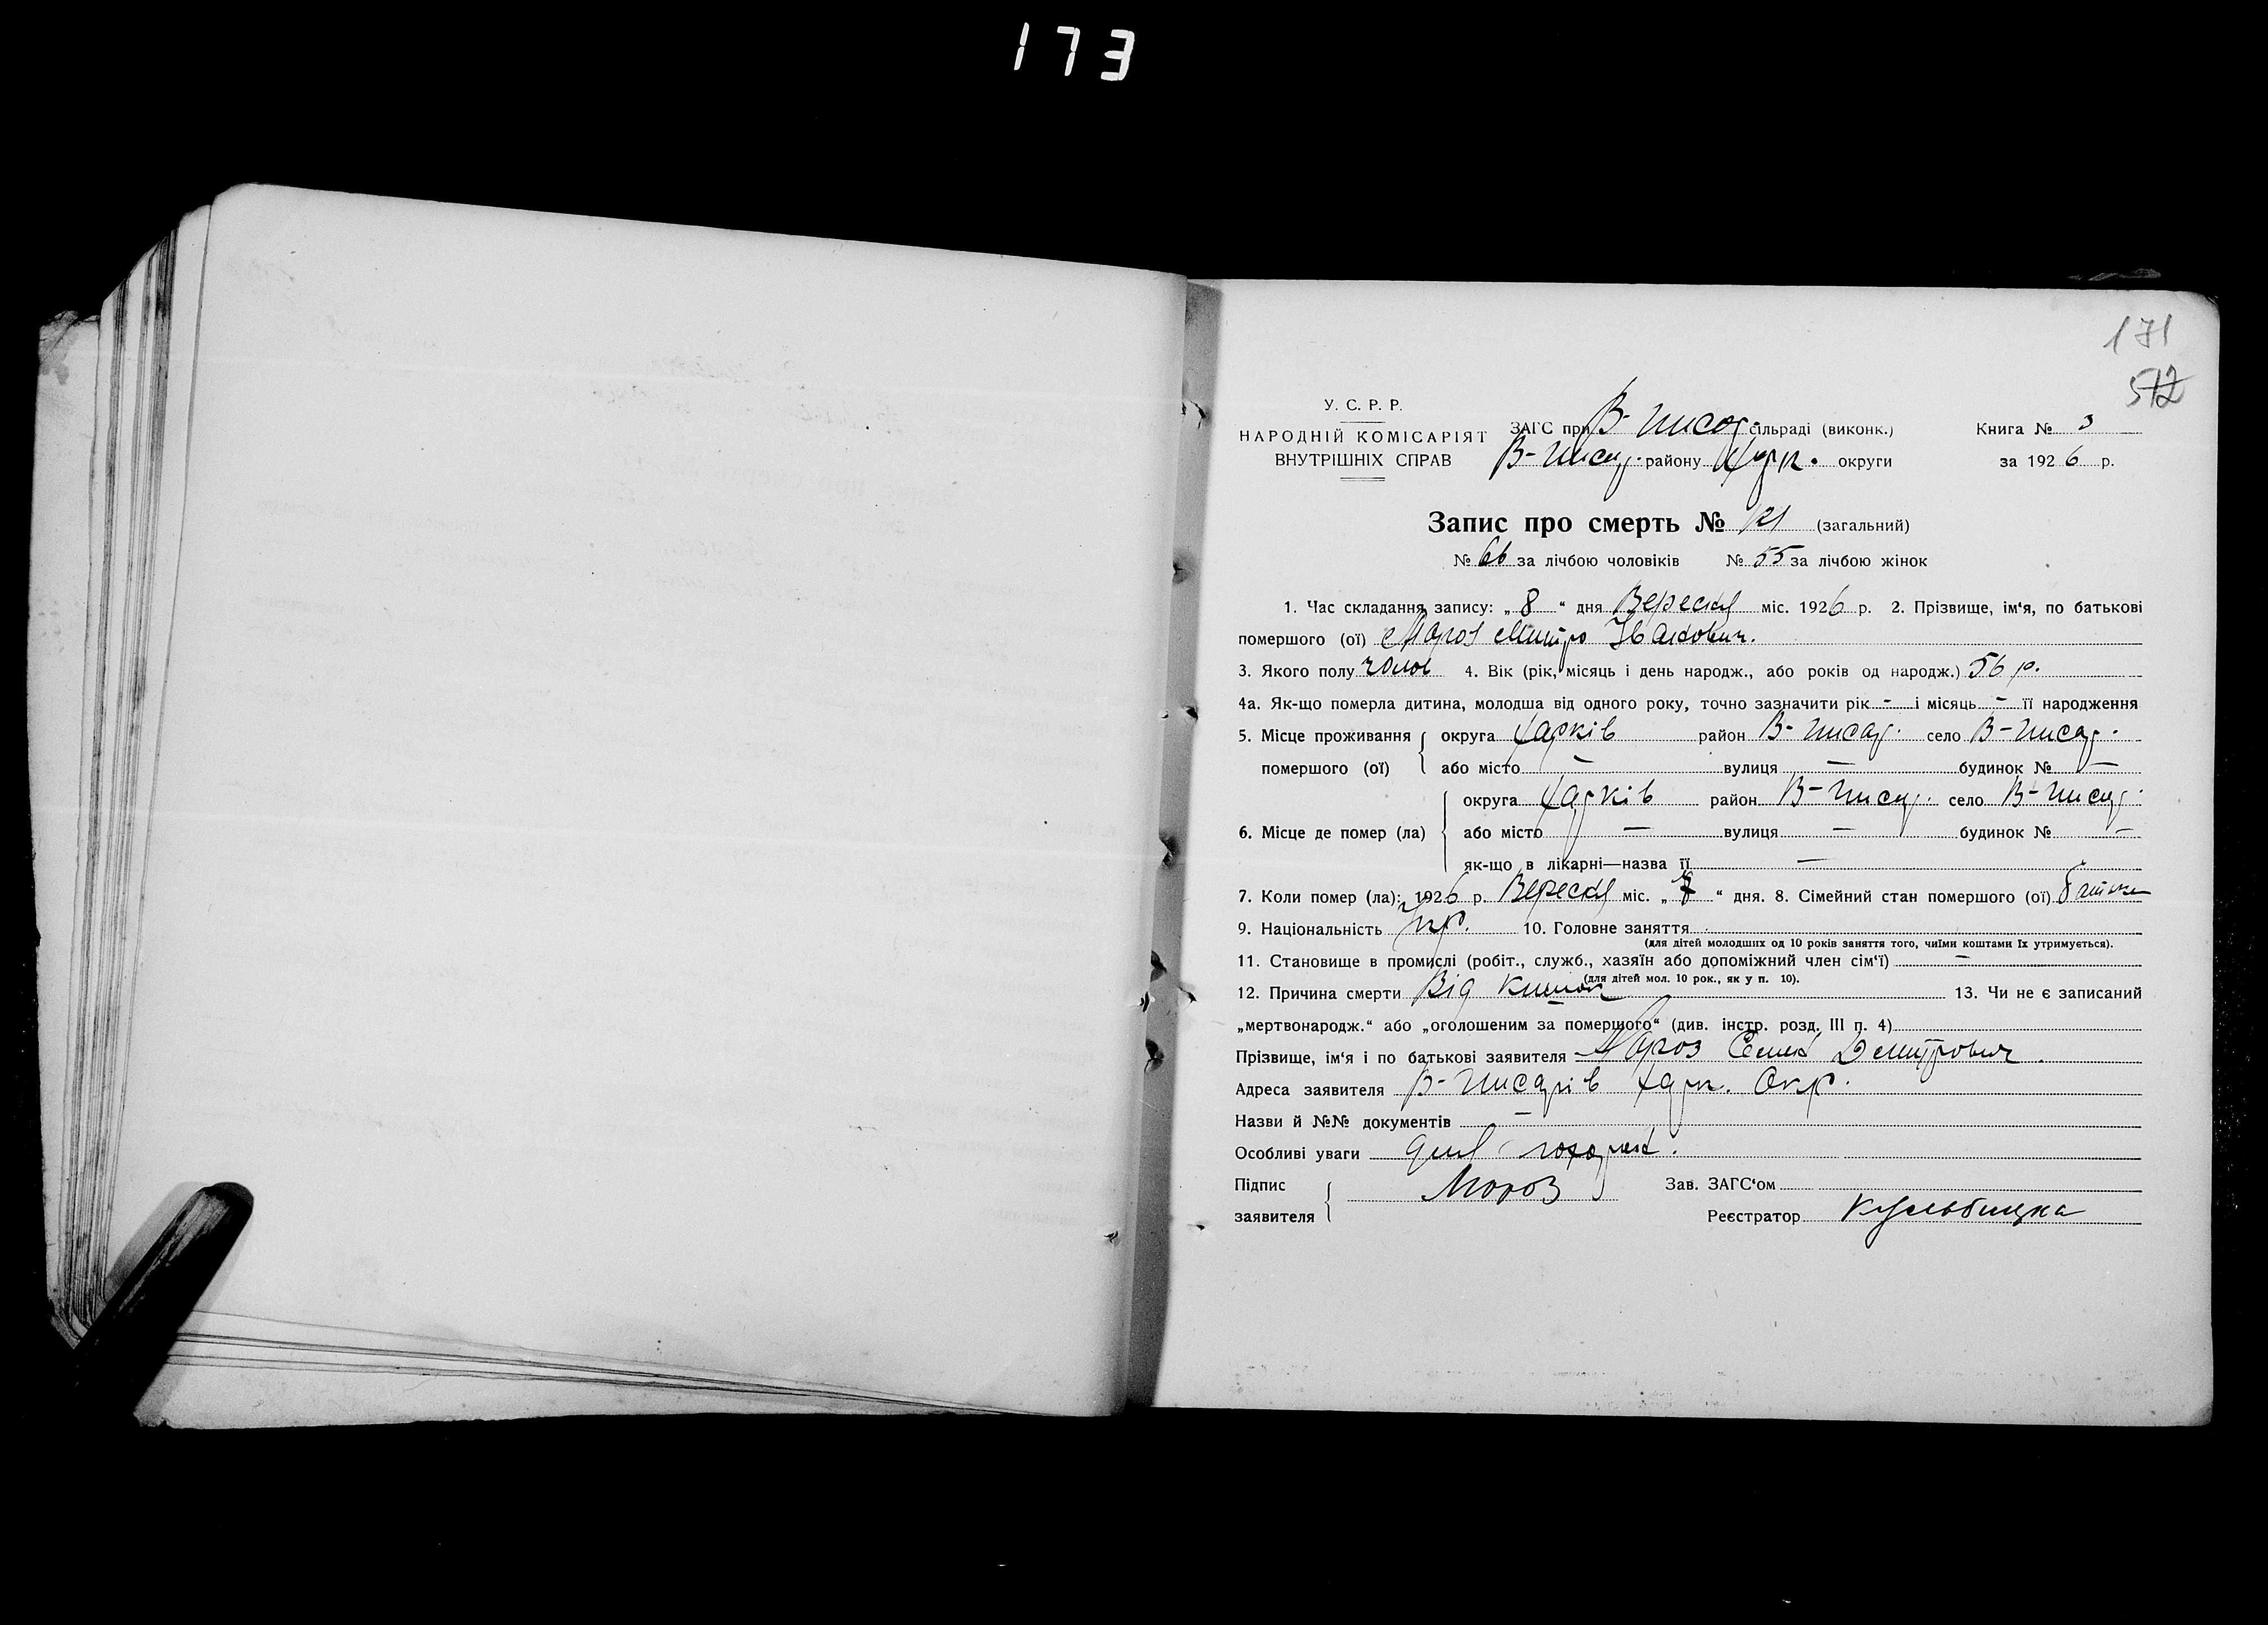 173
171
512
У. С. Р. Р.
НАРОДНІЙ КОМІСАРІЯТ
ВНУТРІШНІХ СПРАВ
ЗАГС при В-Писар. сільраді (виконк.)
В-Писар. району Харк. округи
Книга № 3
за 1926 р.
Запис про смерть № 121 (загальний)
№ 66 за лічбою чоловіків № 55 за лічбою жінок
1. Час складання запису: „ 8 “ дня Вересня міс. 1926 р. 2. Прізвище, ім‘я, по батькові
помершого (ої) Мороз Митро Іванович.
3. Якого полу чолов 4. Вік (рік, місяць і день народж., або років од народж.) 56 р.
4а. Як-що померла дитина, молодша від одного року, точно зазначити рік - і місяць - її народження
5. Місце проживання помершого (ої) округа Харків район В-Писар. село В-Писар.
або місто — вулиця — будинок № —
6. Місце де помер (ла) округа Харків район В-Писар. село В-Писар.
або місто — вулиця — будинок № —
як-що в лікарні—назва її —
7. Коли помер (ла): 1926 р. Вересня міс. „ 7 “ дня. 8. Сімейний стан помершого (ої)
9. Національність Укр. 10. Головне заняття
(для дітей молодших од 10 років заняття того, чиїми коштами їх утримується).
11. Становище в промислі (робіт., служб., хазяїн або допоміжний член сім‘ї) —
(для дітей мол. 10 рок., як у п. 10).
12. Причина смерти Від кишок 13. Чи не є записаний
„мертвонародж.“ або „оголошеним за помершого“ (див. інстр. розд. III п. 4)
Прізвище, ім‘я і по батькові заявителя Мороз Семен Дмитрович.
Адреса заявителя В-Писарів Харк. Окр.
Назви й №№ документів —
Особливі уваги для похорон.
Підпис заявителя Мороз
Зав. ЗАГС‘ом
Реєстратор Кульбицка